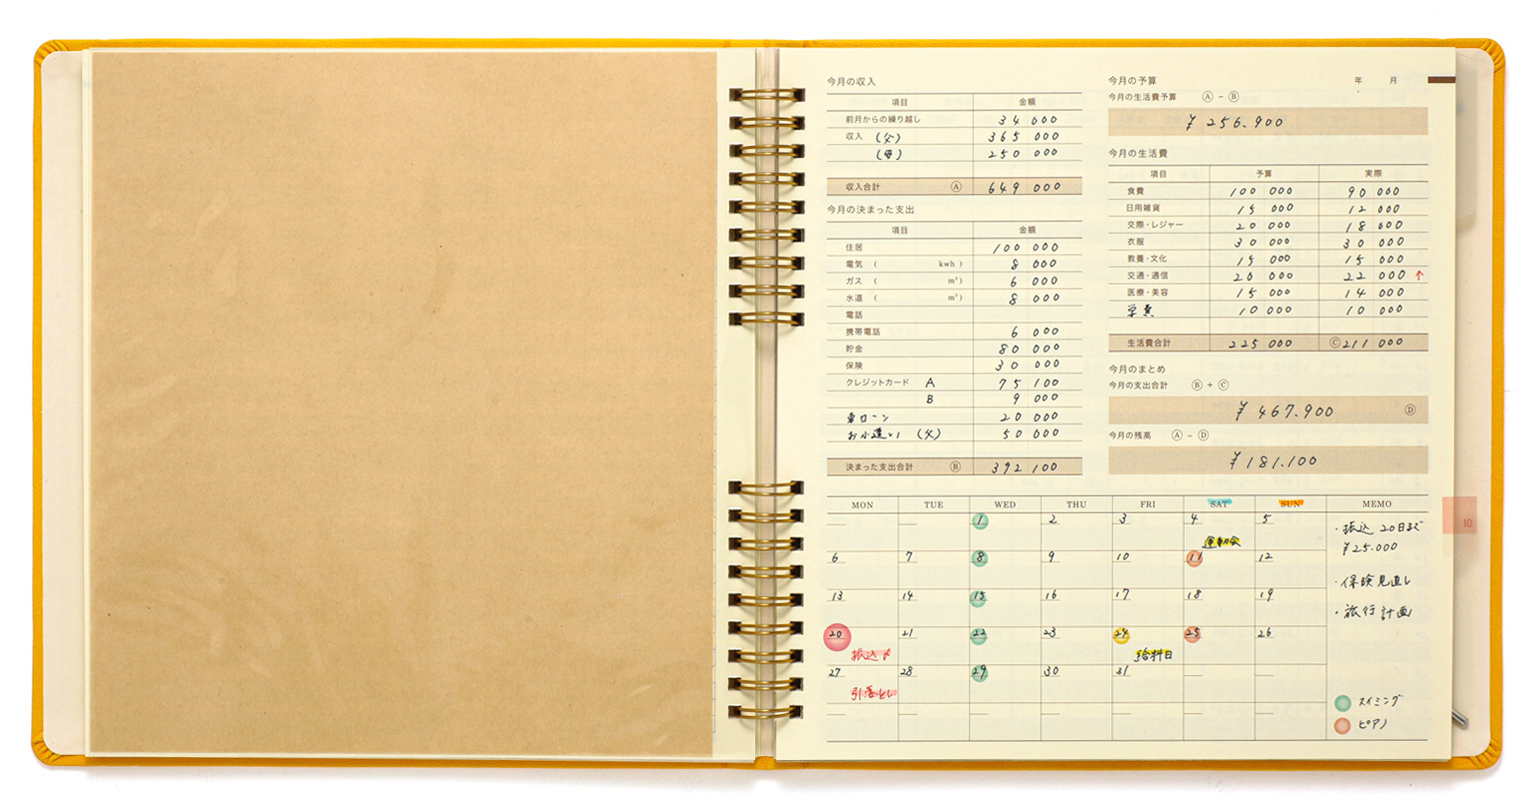 今月の収入
項目 金額
前月からの繰り越し 34 000
収入 (父) 365 000
(母) 250 000
収入合計 Ⓐ 649 000
今月の決まった支出
項目 金額
住居 100 000
電気 ( kwh ) 8 000
ガス ( m³ ) 6 000
水道 ( m³ ) 8 000
電話
携帯電話 6 000
貯金 80 000
保険 30 000
クレジットカード A 75 100
B 9 000
車ローン 20 000
お小遣い (父) 50 000
決まった支出合計 Ⓑ 392 100
年 月
今月の予算
今月の生活費予算 Ⓐ − Ⓑ
¥256.900
今月の生活費
項目 予算 実際
食費 100 000 90 000
日用雑貨 15 000 12 000
交際・レジャー 20 000 18 000
衣服 30 000 30 000
教養・文化 15 000 15 000
交通・通信 20 000 22 000 ↑
医療・美容 15 000 14 000
10 000 10 000
生活費合計 225 000 Ⓒ 211 000
今月のまとめ
今月の支出合計 Ⓑ + Ⓒ
¥467.900 Ⓓ
今月の残高 Ⓐ − Ⓓ
¥181.100
MON TUE WED THU FRI SAT SUN MEMO
1 2 3 4 5
運動会
6 7 8 9 10 11 12
13 14 15 16 17 18 19
20 21 22 23 24 25 26
振込〆 給料日
27 28 29 30 31
引落とし
・振込 20日まで
¥25.000
・保険見直し
・旅行計画
スイミング
ピアノ
10